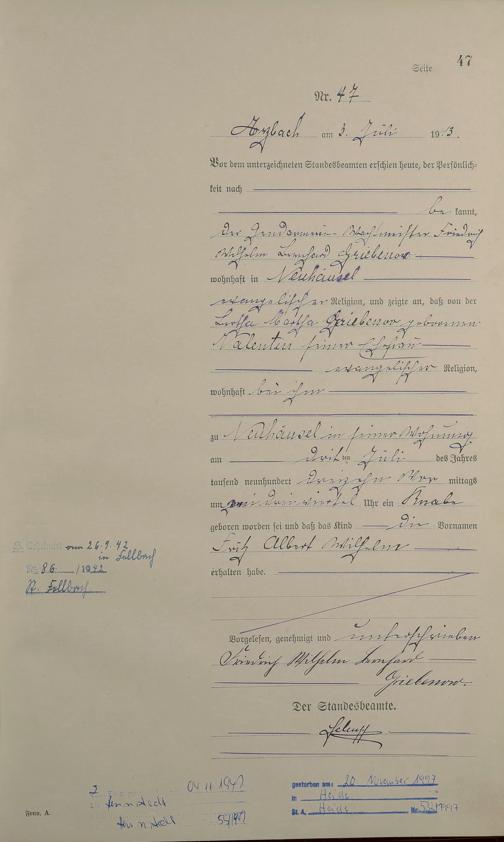 Seite 47
Nr. 47
Arzbach am 3. Juli 1913.
Vor dem unterzeichneten Standesbeamten erschien heute, der Persönlich-
keit nach
be kannt,
der Gendarmerie-Wachtmeister Friedrich
Wilhelm Bernhard Griebenow
wohnhaft in Neuhäusel
evangelischer Religion, und zeigte an, daß von der
Bertha Martha Griebenow geborenen
Valentin seiner Ehefrau
evangelischer Religion,
wohnhaft bei ihm
zu Neuhäusel in seiner Wohnung
am dritten Juli des Jahres
tausend neunhundert dreizehn Vor mittags
um dreiviertel Uhr ein Knabe
geboren worden sei und daß das Kind die Vornamen
Fritz Albert Wilhelm
erhalten habe.
Vorgelesen, genehmigt und unterschrieben
Friedrich Wilhelm Bernhard
Griebenow.
Der Standesbeamte.
vom 26.9.42
in Fellbach
86 /1942
St. Fellbach
gestorben am: 20 November 1997
in Heide
St. A. Heide Nr.
Form. A.